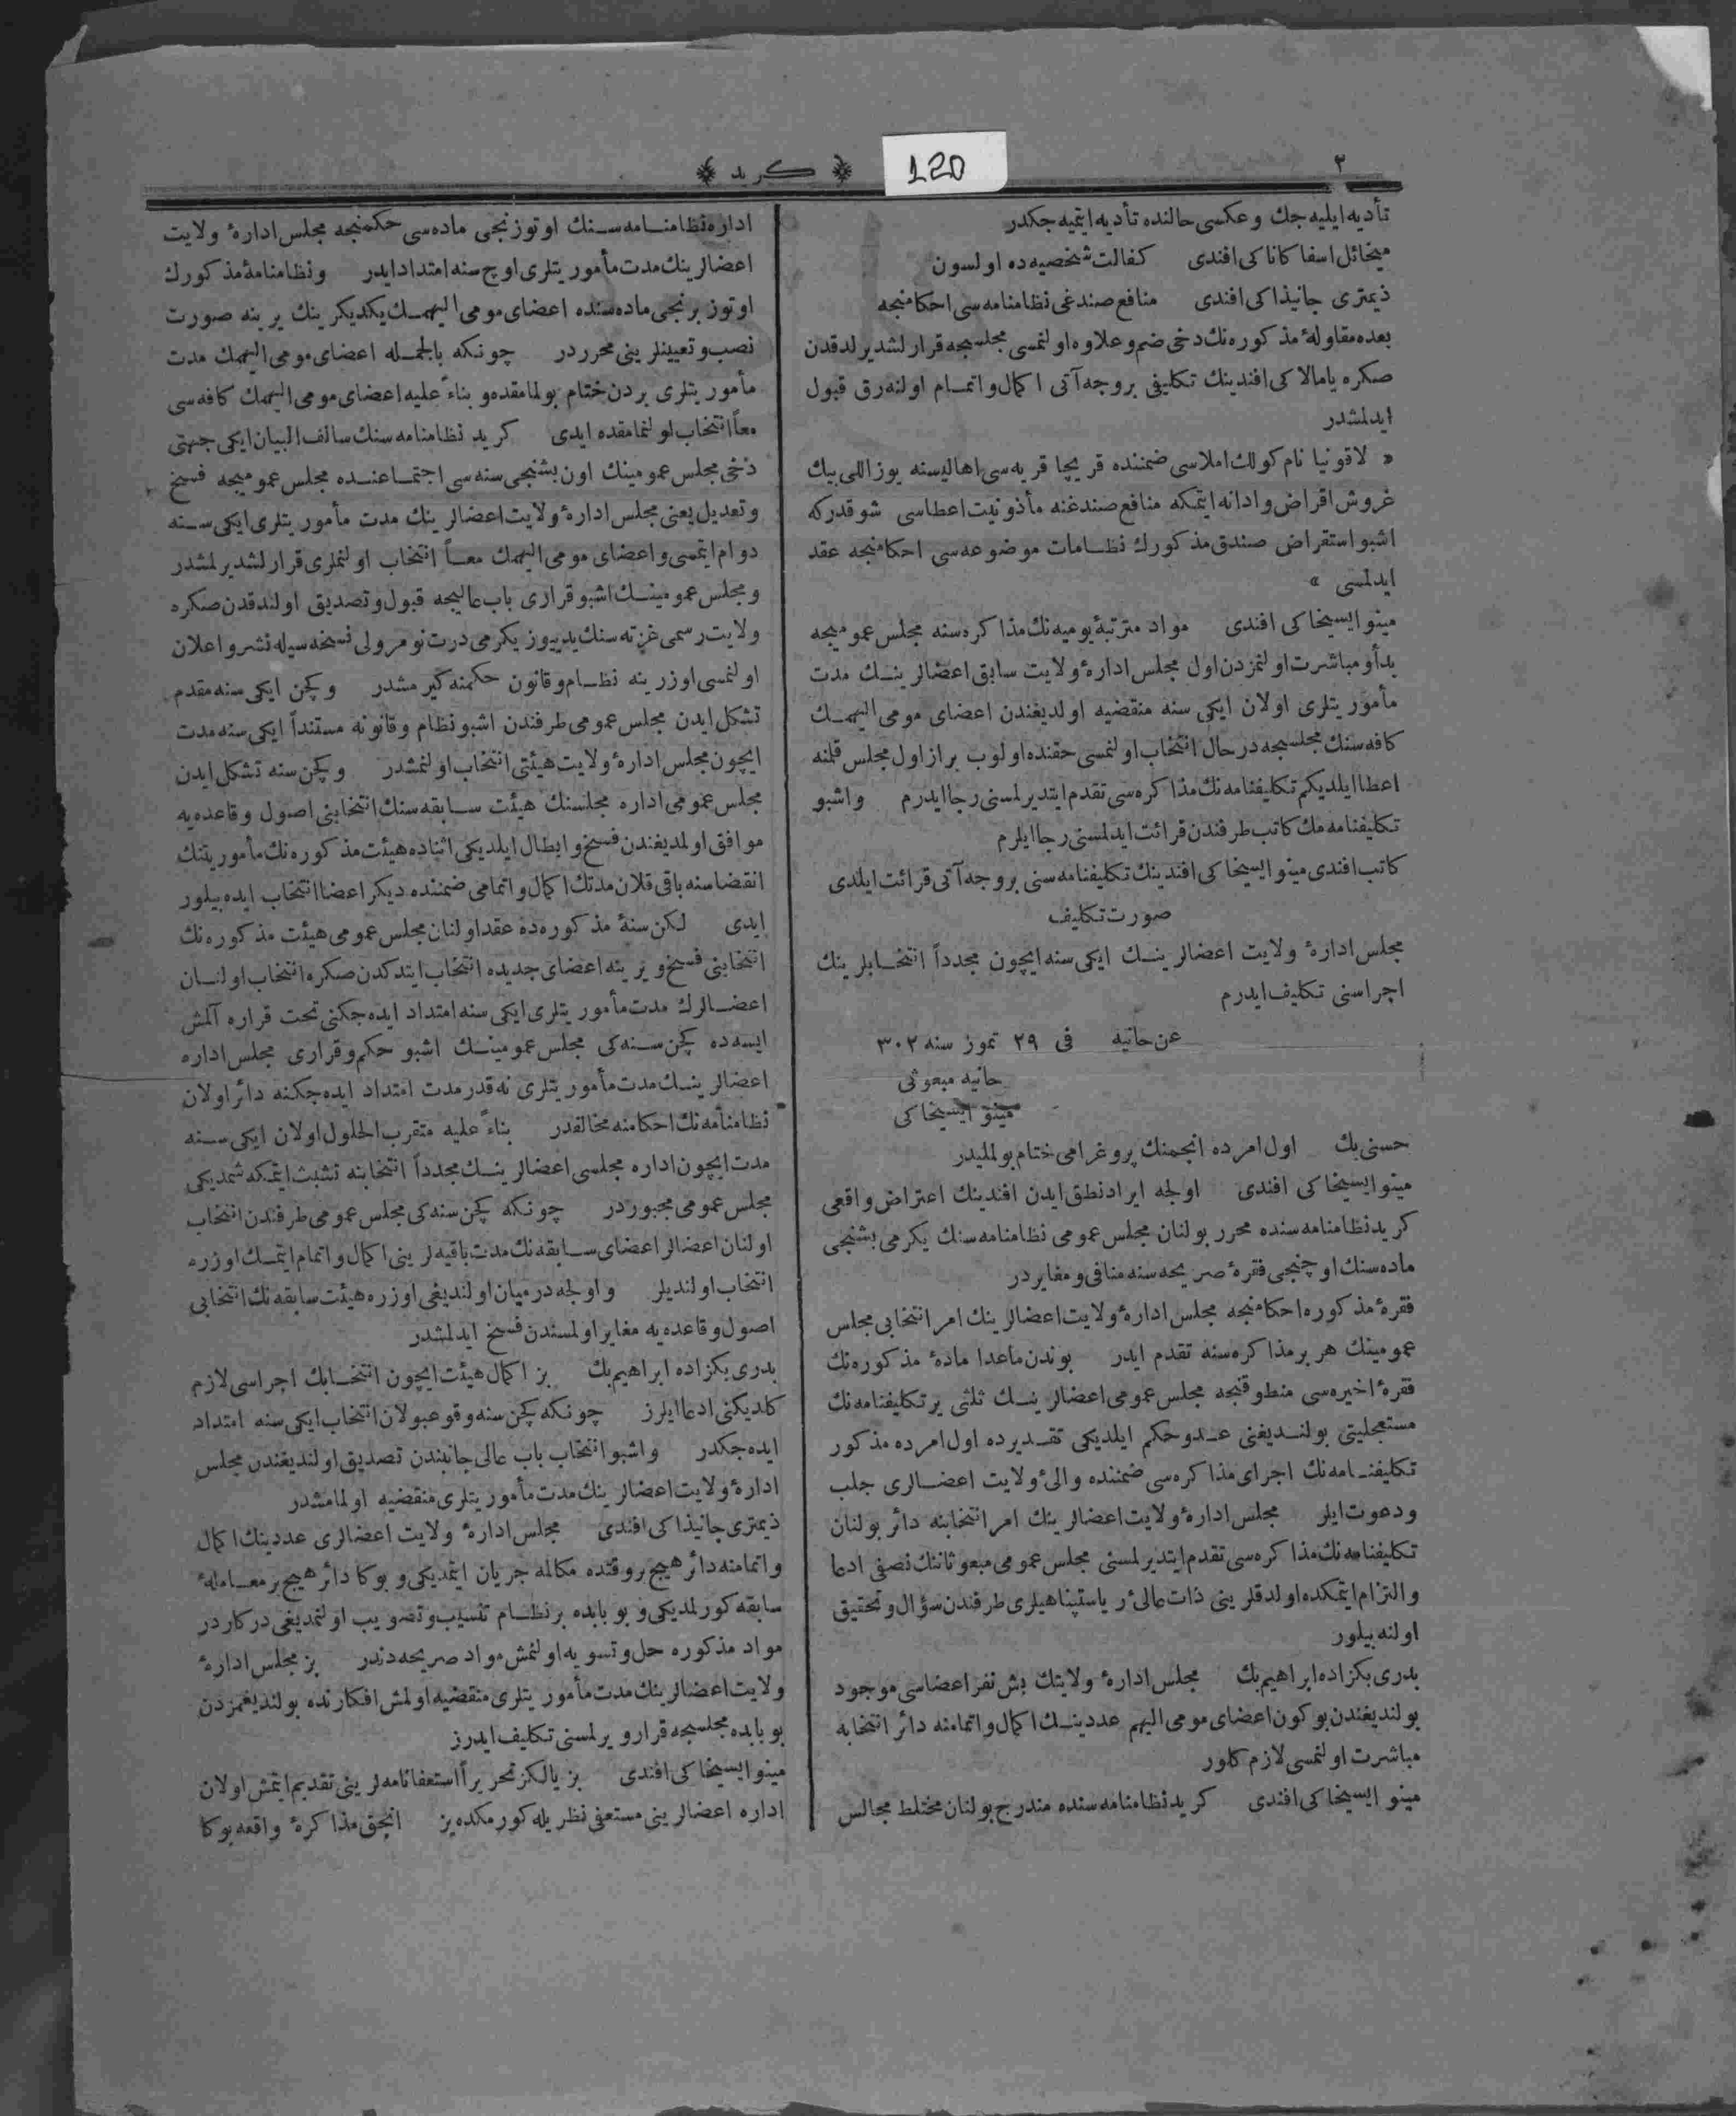 ٢
120
﴿ كريد ﴾
تأديه ايليه جك وعكسى حالنده تأديه ايتميه جكدر
ميخائل اسفاكاناكى افندى كفالت شخصيه ده اولسون
ذيمترى جانيذاكى افندى منافع صندغى نظامنامه سى احكامنجه
بعده مقاولهٔ مذكوره نك دخى ضم وعلاوه اولنمسى مجلسجه قرارلشديرلدقدن
صكره يامالاكى افندينك تكليفى بروجه آتى اكمال واتمام اولنه رق قبول
ايدلمشدر
« لاقونيا نام كولك املاسى ضمننده قريچا قريه سى اهاليسنه يوز اللى بيك
غروش اقراض وادانه ايتمكه منافع صندغنه مأذونيت اعطاسى شو قدركه
اشبو استقراض صندق مذكورك نظامات موضوعه سى احكامنجه عقد
ايدلمسى »
مينو ايسيخاكى افندى مواد مترتبهٔ يوميه نك مذاكره سنه مجلس عموميجه
بدأ ومباشرت اولنمزدن اول مجلس ادارهٔ ولايت سابق اعضالرينك مدت
مأموريتلرى اولان ايكى سنه منقضيه اولديغندن اعضاى مومى اليهمك
كافه سنك مجلسجه درحال انتخاب اولنمسى حقنده اولوب براز اول مجلس قلمنه
اعطا ايلديكم تكليفنامه نك مذاكره سى تقدم ايتديرلسنى رجا ايدرم واشبو
تكليفنامه مك كاتب طرفندن قرائت ايدلمسنى رجا ايلرم
كاتب افندى مينو ايسيخاكى افندينك تكليفنامه سنى بروجه آتى قرائت ايلدى
صورت تكليف
مجلس ادارهٔ ولايت اعضالرينك ايكى سنه ايچون مجدداً انتخابلرينك
اجراسنى تكليف ايدرم
عن حانيه فى ٢٩ تموز سنه ٣٠٢
حانيه مبعوثى
مينو ايسيخاكى
حسنى بك اول امرده انجمنك پروغرامى ختام بولمليدر
مينو ايسيخاكى افندى اولجه ايراد نطق ايدن افندينك اعتراض واقعى
كريد نظامنامه سنده محرر بولنان مجلس عمومى نظامنامه سنك يكرمى بشنجى
ماده سنك اوچنجى فقرهٔ صريحه سنه منافى ومغايردر
فقرهٔ مذكوره احكامنجه مجلس ادارهٔ ولايت اعضالرينك امر انتخابى مجلس
عمومينك هر بر مذاكره سنه تقدم ايدر بوندن ماعدا مادهٔ مذكوره نك
فقرهٔ اخيره سى منطوقنجه مجلس عمومى اعضالرينك ثلثى بر تكليفنامه نك
مستعجليتى بولنديغنى عد وحكم ايلديكى تقديرده اول امرده مذكور
تكليفنامه نك اجراى مذاكره سى ضمننده والئ ولايت اعضالرى جلب
ودعوت ايلر مجلس ادارهٔ ولايت اعضالرينك امر انتخابنه دائر بولنان
تكليفنامه نك مذاكره سى تقدم ايتديرلسنى مجلس عمومى مبعوثاننك نصفى ادعا
والتزام ايتمكده اولدقلرينى ذات عالئ رياستپناهيلرى طرفندن سؤال وتحقيق
اولنه بيلور
بدرى بكزاده ابراهيم بك مجلس ادارهٔ ولايتك بش نفر اعضاسى موجود
بولنديغندن بوكون اعضاى مومى اليهم عددينك اكمال واتمامنه دائر انتخابه
مباشرت اولنمسى لازم كلور
مينو ايسيخاكى افندى كريد نظامنامه سنده مندرج بولنان مختلط مجالس
اداره نظامنامه سنك اوتوزنجى ماده سى حكمنجه مجلس ادارهٔ ولايت
اعضالرينك مدت مأموريتلرى اوچ سنه امتداد ايدر ونظامنامهٔ مذكورك
اوتوز برنجى ماده سنده اعضاى مومى اليهمك يكديكرينك يرينه صورت
نصب وتعيينلرينى محرردر چونكه بالجمله اعضاى مومى اليهمك مدت
مأموريتلرى بردن ختام بولمامقده و بناءً عليه اعضاى مومى اليهمك كافه سى
معاً انتخاب اولنمامقده ايدى كريد نظامنامه سنك سالف البيان ايكى جهتى
دخى مجلس عمومينك اون بشنجى سنه سى اجتماعنده مجلس عموميجه فسخ
وتعديل يعنى مجلس ادارهٔ ولايت اعضالرينك مدت مأموريتلرى ايكى سنه
دوام ايتمسى واعضاى مومى اليهمك معاً انتخاب اولنملرى قرارلشديرلمشدر
ومجلس عمومينك اشبو قرارى باب عاليجه قبول وتصديق اولندقدن صكره
ولايت رسمى غزته سنك يديوز يكرمى درت نومرولى نسخه سيله نشر واعلان
اولنمسى اوزرينه نظام وقانون حكمنه كيرمشدر وكچن ايكى سنه مقدم
تشكل ايدن مجلس عمومى طرفندن اشبو نظام وقانونه مستنداً ايكى سنه مدت
ايچون مجلس ادارهٔ ولايت هيئتى انتخاب اولنمشدر وكچن سنه تشكل ايدن
مجلس عمومى اداره مجلسنك هيئت سابقه سنك انتخابنى اصول وقاعده يه
موافق اولمديغندن فسخ وابطال ايلديكى اثناده هيئت مذكوره نك مأموريتنك
انقضاسنه باقى قلان مدتك اكمال واتمامى ضمننده ديكر اعضا انتخاب ايده بيلور
ايدى لكن سنهٔ مذكوره ده عقد اولنان مجلس عمومى هيئت مذكوره نك
انتخابنى فسخ ويرينه اعضاى جديده انتخاب ايتدكدن صكره انتخاب اولنان
اعضالرك مدت مأموريتلرى ايكى سنه امتداد ايده جكنى تحت قراره آلمش
ايسه ده كچن سنه كى مجلس عمومينك اشبو حكم وقرارى مجلس اداره
اعضالرينك مدت مأموريتلرى نه قدر مدت امتداد ايده جكنه دائر اولان
نظامنامه نك احكامنه مخالفدر بناءً عليه متقرب الحلول اولان ايكى سنه
مدت ايچون اداره مجلسى اعضالرينك مجدداً انتخابنه تشبث ايتمكه شمديكى
مجلس عمومى مجبوردر چونكه كچن سنه كى مجلس عمومى طرفندن انتخاب
اولنان اعضالر اعضاى سابقه نك مدت باقيه لرينى اكمال واتمام ايتمك اوزره
انتخاب اولنديلر واولجه درميان اولنديغى اوزره هيئت سابقه نك انتخابى
اصول وقاعده يه مغاير اولمسندن فسخ ايدلمشدر
بدرى بكزاده ابراهيم بك بز اكمال هيئت ايچون انتخابك اجراسى لازم
كلديكنى ادعا ايلرز چونكه كچن سنه وقوعبولان انتخاب ايكى سنه امتداد
ايده جكدر واشبو انتخاب باب عالى جانبندن تصديق اولنديغندن مجلس
ادارهٔ ولايت اعضالرينك مدت مأموريتلرى منقضيه اولمامشدر
ذيمترى جانيذاكى افندى مجلس ادارهٔ ولايت اعضالرى عددينك اكمال
واتمامنه دائر هيچ بر وقتده مكالمه جريان ايتمديكى و بوكا دائر هيچ بر معاملهٔ
سابقه كورلمديكى و بو بابده بر نظام تنسيب وتصويب اولنمديغى دركاردر
مواد مذكوره حل وتسويه اولنمش مواد صريحه دندر بز مجلس ادارهٔ
ولايت اعضالرينك مدت مأموريتلرى منقضيه اولمش افكارنده بولنديغمزدن
بو بابده مجلسجه قرار ويرلسنى تكليف ايدرز
مينو ايسيخاكى افندى بز يالكز تحريراً استعفانامه لرينى تقديم ايتمش اولان
اداره اعضالرينى مستعفى نظريله كورمكده يز انجق مذاكرهٔ واقعه بوكا